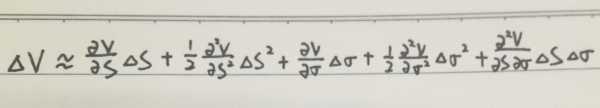 ΔV ≈ ∂V/∂S ΔS + 1/2 ∂²V/∂S² ΔS² + ∂V/∂σ Δσ + 1/2 ∂²V/∂σ² Δσ² + ∂²V/∂S∂σ ΔSΔσ